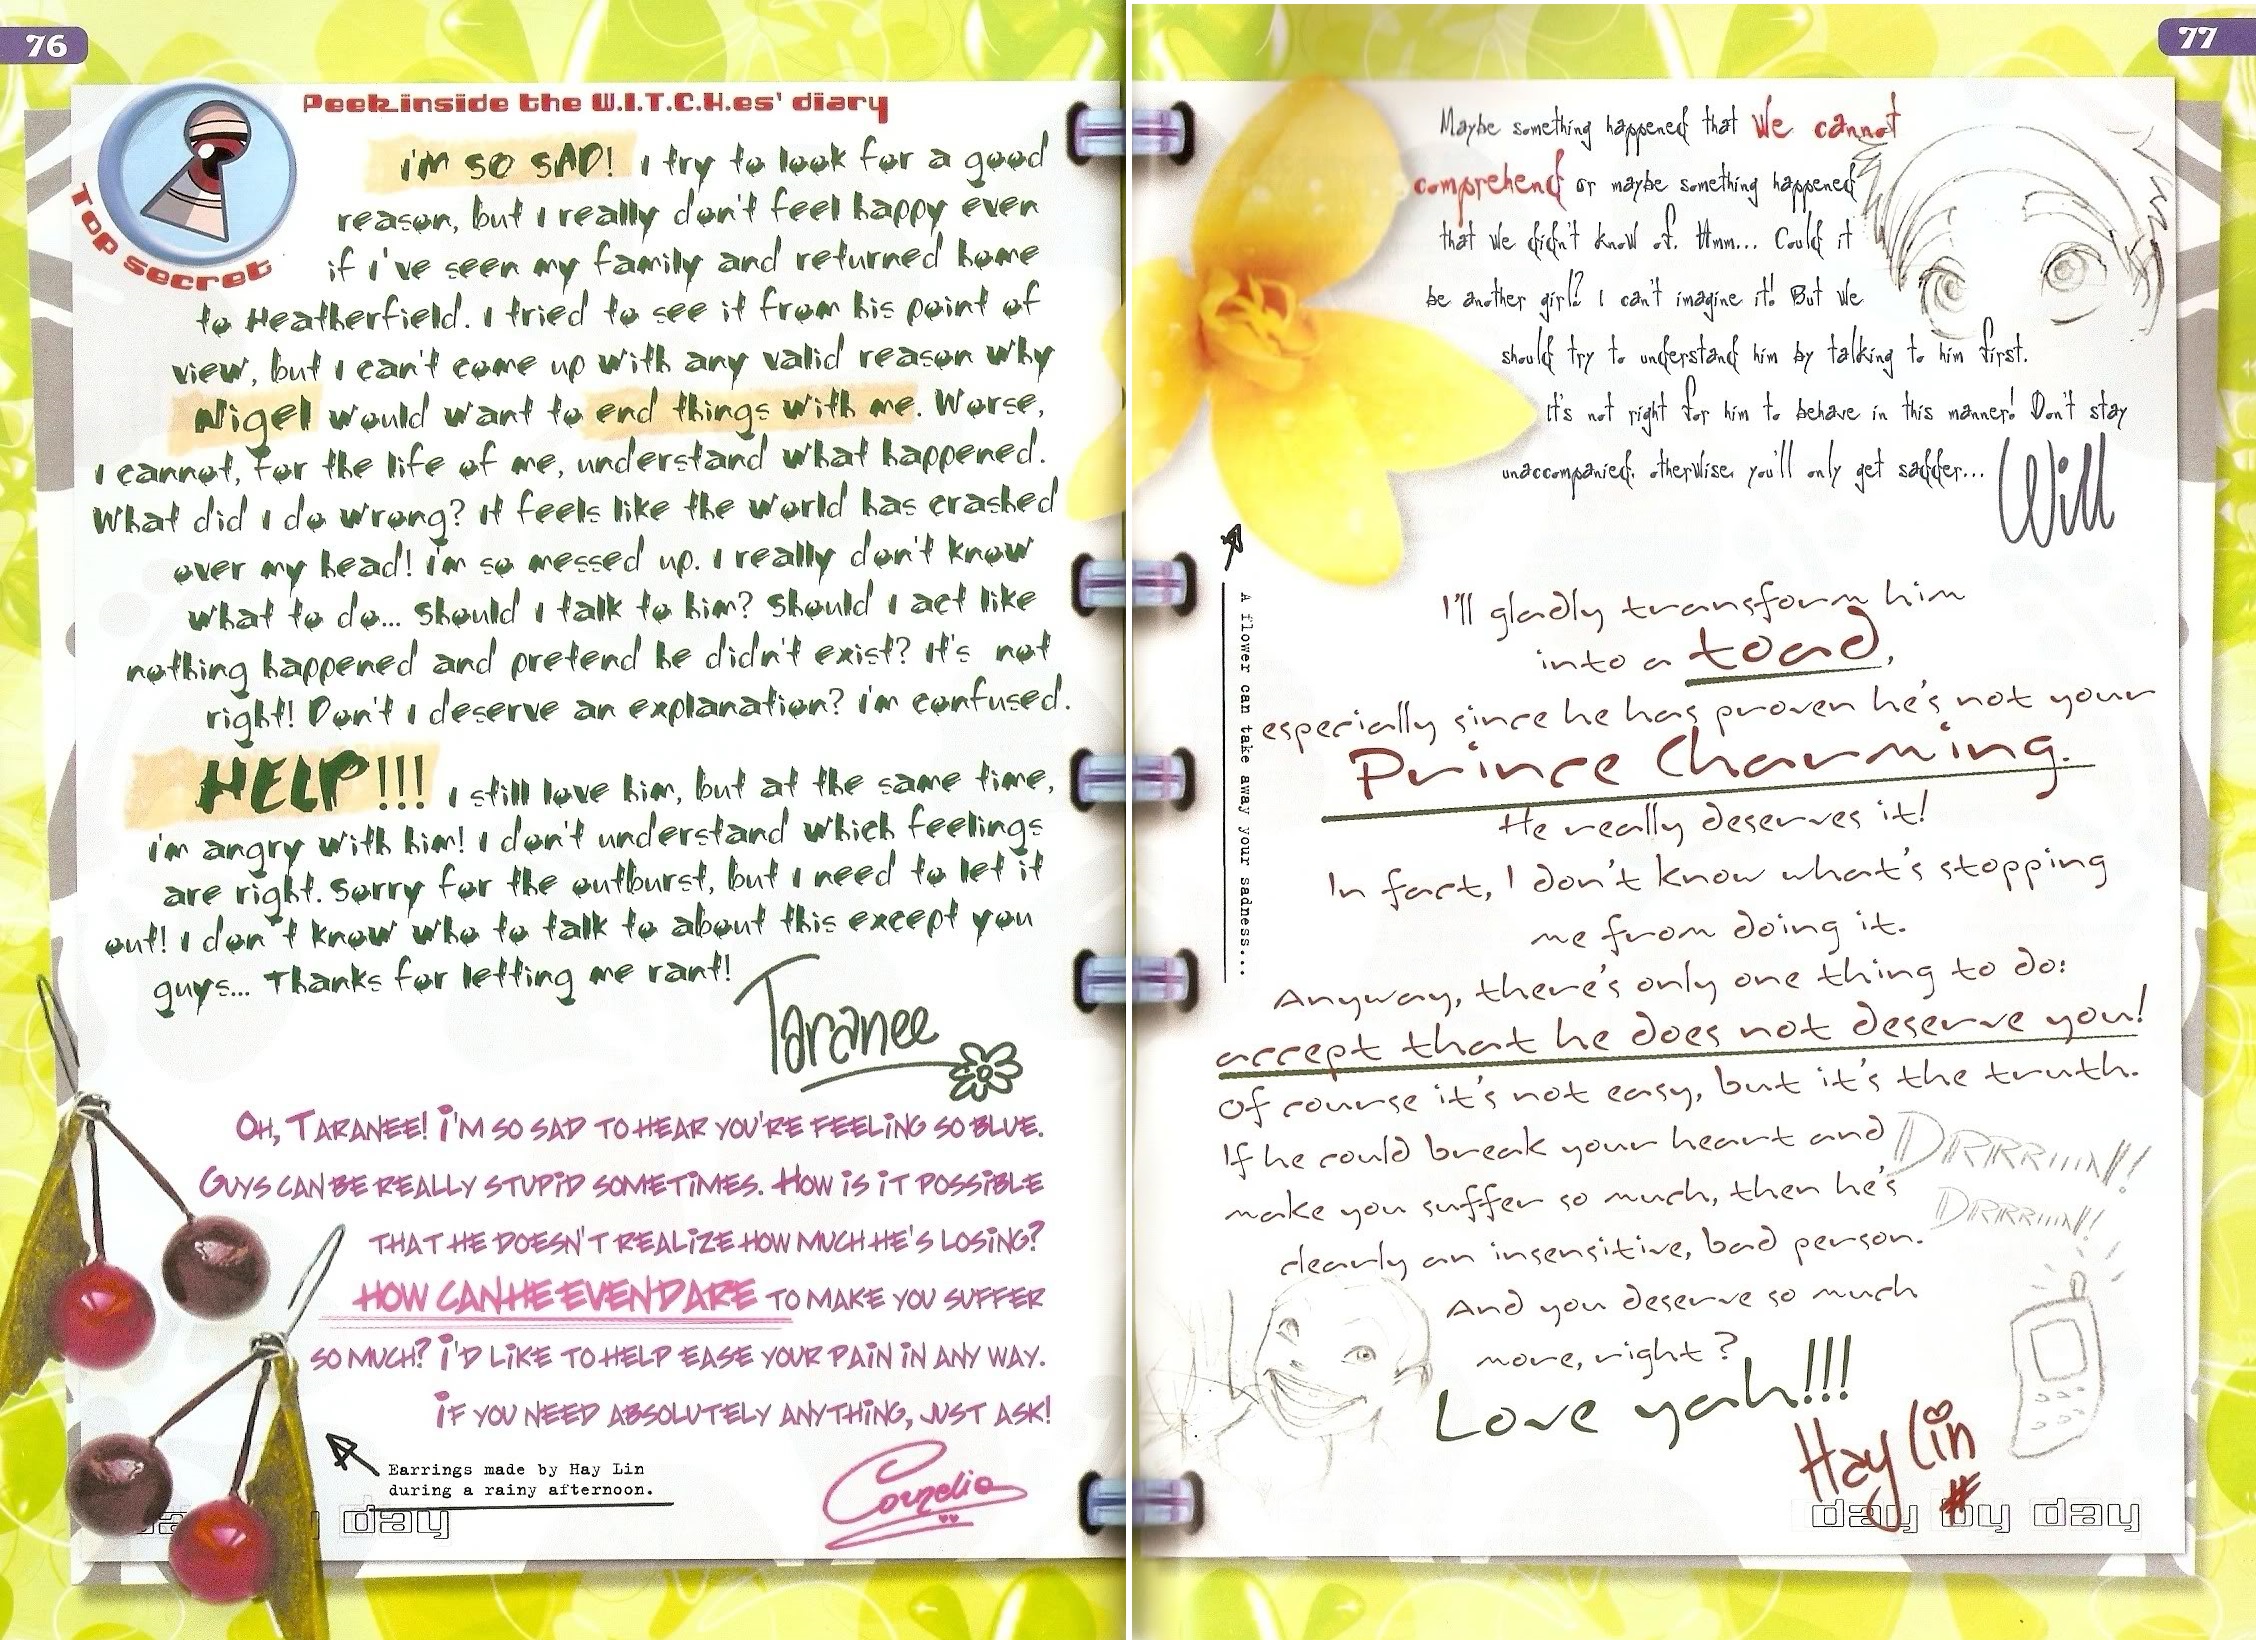 76
Peek inside the W.I.T.C.H.es' diary
Top secret
I'm so sad! I try to look for a good
reason, but I really don't feel happy even
if I've seen my family and returned home
to Heatherfield. I tried to see it from his point of
view, but I can't come up with any valid reason why
Nigel would want to end things with me. Worse,
I cannot, for the life of me, understand what happened.
What did I do wrong? It feels like the world has crashed
over my head! I'm so messed up. I really don't know
what to do... Should I talk to him? Should I act like
nothing happened and pretend he didn't exist? It's not
right! Don't I deserve an explanation? I'm confused.
HELP!!! I still love him, but at the same time,
I'm angry with him! I don't understand which feelings
are right. Sorry for the outburst, but I need to let it
out! I don't know who to talk to about this except you
guys... Thanks for letting me rant!
Taranee
Oh, Taranee! I'm so sad to hear you're feeling so blue.
Guys can be really stupid sometimes. How is it possible
that he doesn't realize how much he's losing?
How can he even dare to make you suffer
so much? I'd like to help ease your pain in any way.
If you need absolutely anything, just ask!
Cornelia
Earrings made by Hay Lin
during a rainy afternoon.
day
77
Maybe something happened that we cannot
comprehend or maybe something happened
that we didn't know of. Hmm... Could it
be another girl? I can't imagine it! But we
should try to understand him by talking to him first.
It's not right for him to behave in this manner! Don't stay
unaccompanied, otherwise, you'll only get sadder...
Will
A flower can take away your sadness...
I'll gladly transform him
into a toad,
especially since he has proven he's not your
Prince Charming.
He really deserves it!
In fact, I don't know what's stopping
me from doing it.
Anyway, there's only one thing to do:
accept that he does not deserve you!
Of course it's not easy, but it's the truth.
If he could break your heart and
make you suffer so much, then he's
clearly an insensitive, bad person.
And you deserve so much
more, right?
Love yah!!!
Hay Lin
DRRRIIIIN!!
DRRRIIIIN!!
day by day